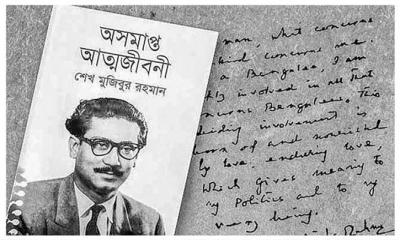 অসমাপ্ত
আত্মজীবনী
শেখ মুজিবুর রহমান
man, what concerns
kind concerns me.
a Bengalee, I am
involved in all that
concerns Bengalees. This
abiding involvement is
born of and nourished
by love, enduring love,
which gives meaning to
my Politics and to my
very being.